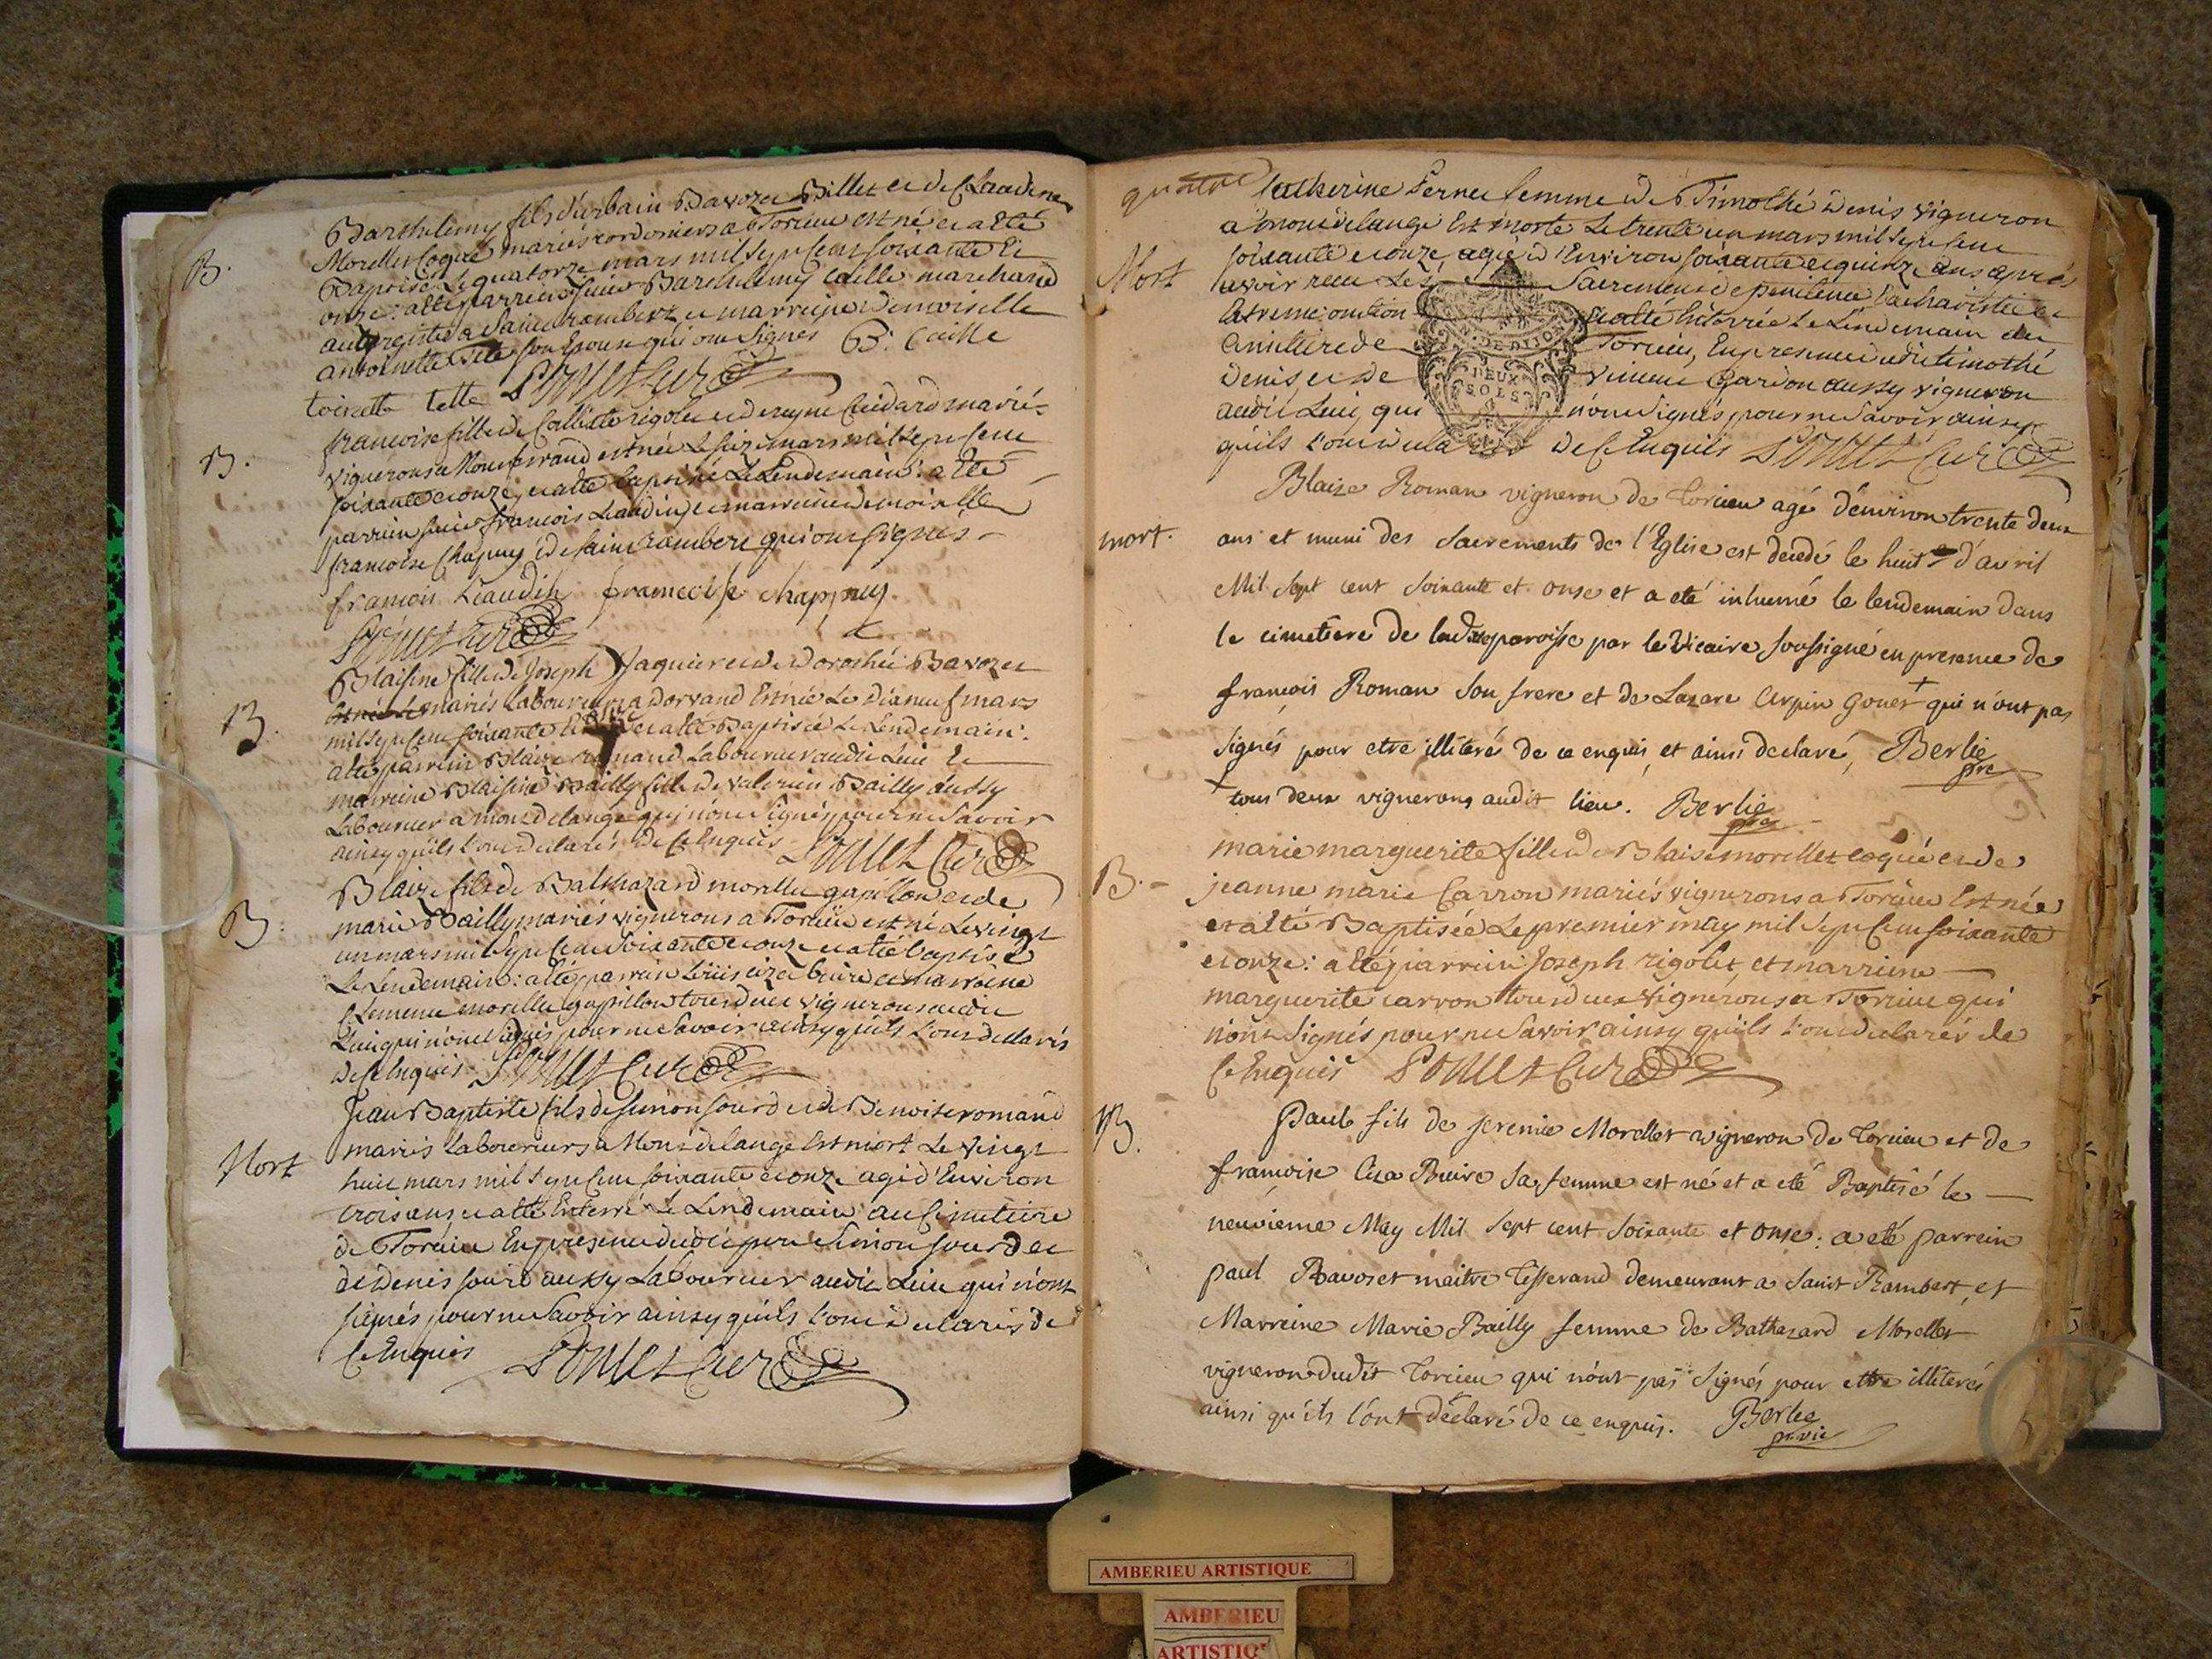 B.
Barthelemy fils d'urbain Bavozet Billet et de Claudine
Morellet coqué mariés cordoniers a Torcieu est né et a Eté
Baptisé Le quatorze mars mil sept cens soixante Et
onze: a Eté parrien sieur Barthelemy Caille marchand
a Saint rambert et marreine Demoiselle
antoinette tete son Epouse qui ont Signés B: Caille
toinette tette Sonnet Curé
B.
francoise fille de rigolet et de reyne Guidard mariés
vignerons a Montferrand est née Le seize mars mil sept Cent
soixante et onze, et a Eté baptisée Le Lendemain: a Eté
parrien sieur francois Liaudin, et marreine demoiselle
francoise Chapuy de saint rambert qui ont signés
francois Liaudin francoise chappuy
Sonnet Curé
B.
Blaisine fille de Joseph Jaquier et de Dorothée Bavozet
mariés Laboureurs a Dorvand Est née Le dianeuf mars
mil sept Cent soixante Et onze et a Eté Baptisée Le Lendemain:
a Eté parrein Blaise romand Laboureur audit Lieu Et
marreine Blaisine Bailly fille de Valerien Bailly aussy
Laboureur a montdelange qui n'ont Signés pour ne Savoir
ainsy qu'ils L'ont déclarés de Ce Enquis Sonnet Curé
B.
Blaize fils de Balthazard morellet gapillon et de
marie Bailly mariés vignerons a Torcieu est né Le vingt
un mars mil sept Cent Soixante et onze et a Eté baptisé
Le Lendemain: a Eté parrein Loüis ciza buire et marreine
Clemence morellet gapillon tous deux vignerons audit
Lieu qui n'ont Signés pour ne Savoir ainsy qu'ils L'ont declarés
de Ce Enquis Sonnet Curé
Mort
Jean Baptiste fils de simon sourd et de Benoite romand
mariés Laboureurs a Montdelange Est mort Le vingt
huit mars mil sept Cent soixante et onze agé d'Environ
trois ans, et a Eté Enterré Le Lendemain au Cimetiere
de Torcieu En presence dudit pere simon sourd et
de denis sourd aussy Laboureur audit Lieu qui n'ont
signés pour ne Savoir ainsy qu'ils L'ont declarés de
Ce Enquis Sonnet Curé
quatre
Mort
Catherine Pernet femme de Timothé Denis vigneron
a montdelange Est morte Le trente un mars mil sept Cent
soixante et onze, agée d'Environ soixante et quinze ans aprés
avoir receu Les Sacremens de penitence Eucharistie et
Extreme onction et a Eté Enterrée Le Lendemain au
Cimitiere de Torcieu, En presence dudit timothé
Denis et de vincent Garion aussy vigneron
audit Lieu, qui n'ont Signés pour ne Savoir ainsy
qu'ils L'ont déclarés de Ce Enquis Sonnet Curé
DE DIJON
DEUX
SOLS
mort.
Blaize Roman vigneron de Torcieu agé d'environ trente deux
ans et muni des sacrements de l'Eglise est decedé le huit d'avril
Mil Sept cent soixante et onse et a eté inhumé le lendemain dans
le cimetiere de laditte paroisse par le Vicaire soussigné en presence de
françois Roman son frere et de Lazare Carpin Gouet + qui n'ont pas
signés pour etre illiteré de ce enquis, et ainsi declaré, Berlie
pre
+ tous deux vignerons audit lieu. Berlie
pre
B.
marie marguerite fille de Blaise morellet coqué et de
jeanne marie Carron mariés vignerons a Torcieu Est née
et a Eté Baptisée Le premier may mil Sept Cent soixante
et onze: a Eté parrein Joseph rigolet et marreine
marguerite carron tous deux vignerons a Torcieu qui
n'ont Signés pour ne Savoir ainsy qu'ils L'ont declarés de
Ce Enquis Sonnet Curé
B.
Paul fils de jeremie Morellet vigneron de Torcieu et de
françoise Ciza Buire sa femme est né et a eté Baptisé le
neuvieme May Mil Sept cent soixante et onse: a eté parrein
paul Bavoset maitre Tisserand demeurant a saint Rambert, et
Marreine Marie Bailly femme de Bathazard Morellet
vigneron dudit Torcieu qui n'ont pas signés pour etre illiterés
ainsi qu'ils l'ont déclaré de ce enquis. Berlie
pr. vic
AMBERIEU ARTISTIQUE
AMBERIEU
ARTISTIQ